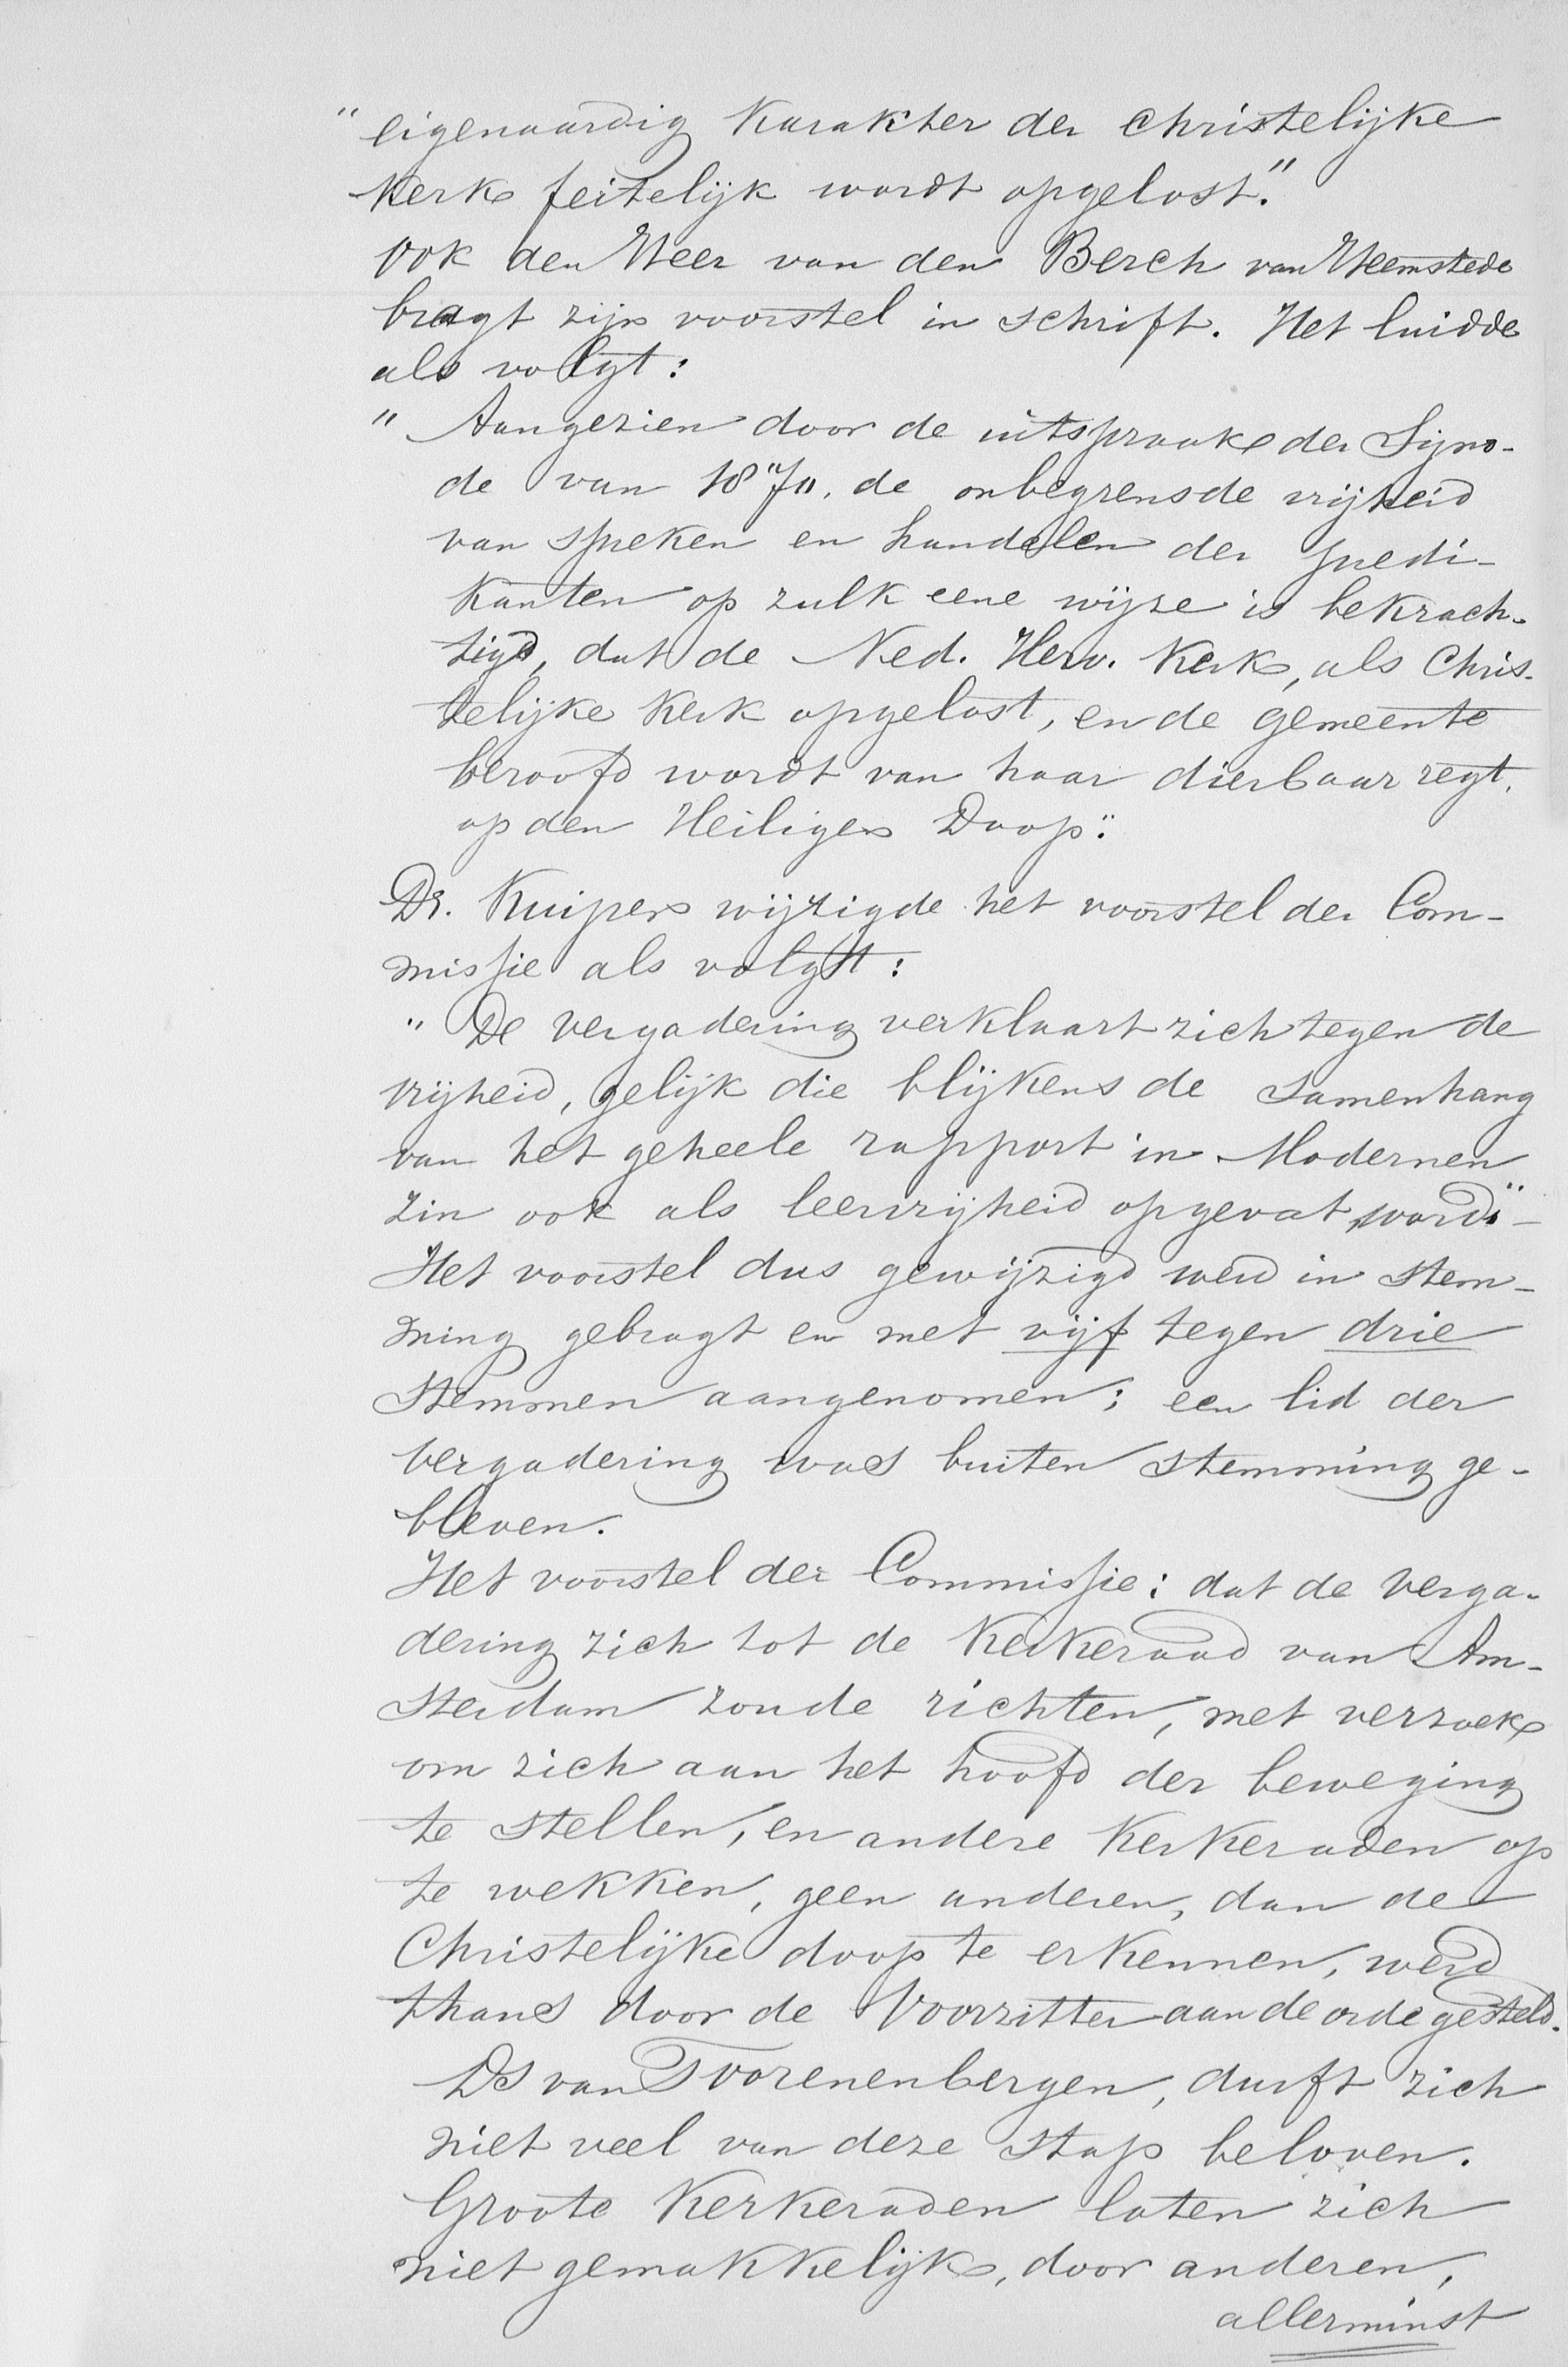 "eigenaardig karakter der christelijke
kerk feitelijk wordt opgelost."
Ook den Heer van den Berch van Heemstede
bragt zijn voorstel in schrift. Het luidde
als volgt:
" Aangezien door de uitspraak der Syno-
de van 1870, de onbegrensde vrijheid
van spreken en handelen der predi-
kanten op zulk eene wijze is bekrach-
tigd, dat de Ned. Herv. Kerk, als Chris-
telijke kerk opgelost, en de gemeente
beroofd wordt van haar dierbaar regt,
op den Heiligen Doop".
Dr. Kuiper wijzigde het voorstel der Com-
missie als volgt:
" De vergadering verklaart zich tegen de
vrijheid, gelijk die blijkens de samenhang
van het geheele rapport in Modernen
zin ook als leervrijheid opgevat word"-
Het voorstel dus gewijzigd werd in stem-
ming gebragt en met vijf tegen drie
stemmen aangenomen; een lid der
vergadering was buiten stemming ge-
bleven.
Het voorstel der Commissie: dat de verga-
dering zich tot de Kerkeraad van Am-
sterdam zoude richten, met verzoek
om zich aan het hoofd der beweging
te stellen, en andere Kerkeraden op
te wekken, geen anderen, dan de
Christelijke doop te erkennen, werd
thans door de Voorzitter aan de orde gesteld.
Ds van Toorenenbergen, durft zich
niet veel van deze stap beloven.
Groote Kerkeraden laten zich
niet gemakkelijk, door anderen,
allerminst